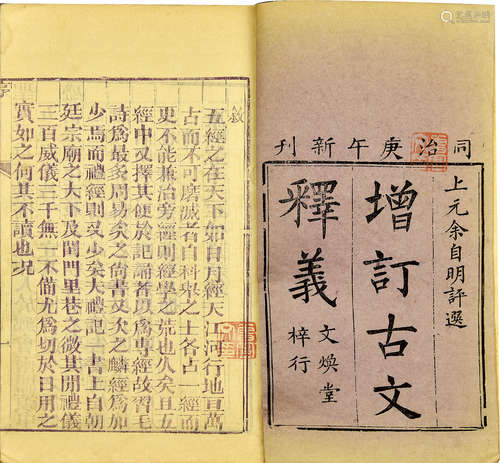 同治庚午新刊
上元余自明評選
增訂古文
釋義
文煥堂
梓行
敘
五經之在天下如日月經天江河行地亘萬
古而不可磨滅者自科舉之士各占一經而
更不能兼治旁經則經學之荒也久矣且五
經中又擇其便於記誦者以為專經故習毛
詩為最多周易矣之尚書又矣之麟經為加
少焉而禮經則又少矣夫禮記一書上自朝
廷宗廟之大下及閨門里巷之微其間禮儀
三百威儀三千無一不備尤為切於日用之
實如之何其不讀也況